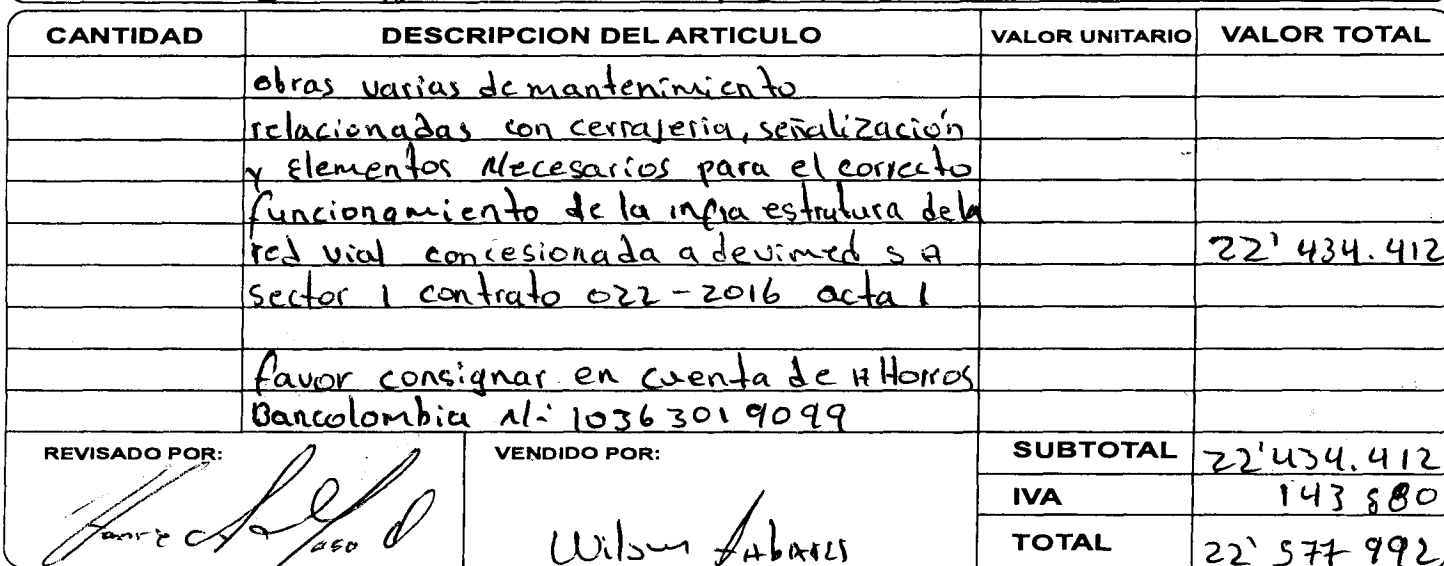 CANTIDAD DESCRIPCION DEL ARTICULO VALOR UNITARIO VALOR TOTAL
obras varias de mantenimiento
relacionadas con cerrajeria, señalización
y Elementos Necesarios para el correcto
funcionamiento de la infra estrutura dela
red vial concesionada a devimed S A 22'434.412
sector 1 contrato 022-2016 acta 1
favor consignar en cuenta de AHorros
Bancolombia N: 10363019099
REVISADO POR: VENDIDO POR: SUBTOTAL 22'434.412
IVA 143 580
Wilson TOTAL 22'577 992